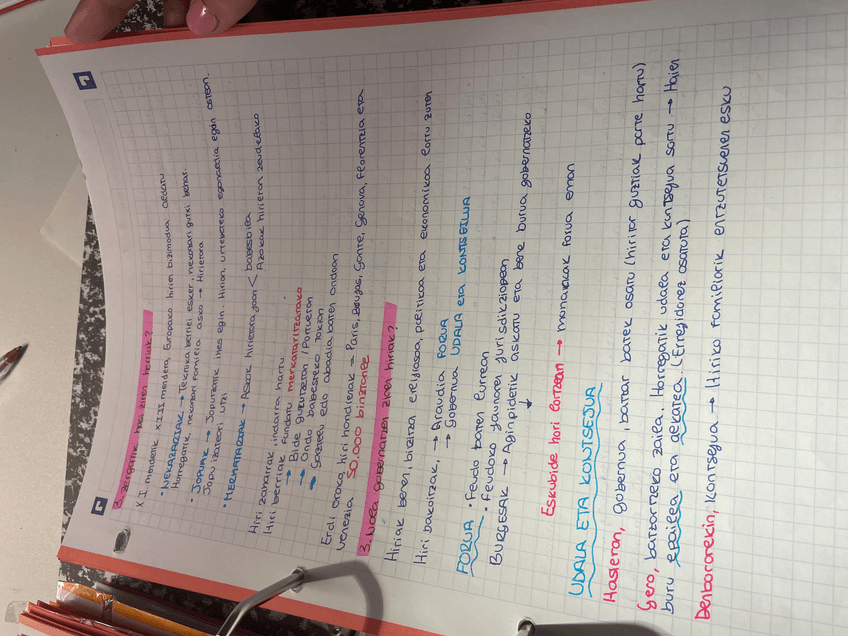 3. Zergatik hazi ziren herriak?
XI mendetik XIII mendera, Europako hirien bizimodua aldatu
• NEKAZARIAK → Teknika berriei esker, nekazari gutxi behar.
Horregatik, nekazari familia asko → Hirietara
• JOPUAK → Joputzatik ihes egin. Hirian, urtebeteko egonaldia egin ostean,
Jopu izateari utzi
• MERKATARIAK → Azokak hirietara joan < babesbila
Azokak hirietan zeudelako
Hiri zaharrak indarra hartu
Hiri berriak fundatu merkataritzarako
→ Bide gurutzetan / Portuetan
→ Ondo babesteko tokian
→ Gaztelu edo abadia baten ondoan
Erdi aroko hiri handienak → Paris, Brujas, Gante, Genova, Florentzia eta
Venezia 50.000 biztanle
3. Nola gobernatzen ziren hiriak?
Hiriak beren bizitza erlijiosoa, politikoa eta ekonomikoa lortu zuten
Hiri bakoitzak, → Araudia FORUA
→ Gobernua UDALA eta KONTSEILUA
FORUA • Feudo baten lurrean
• Feudoko jaunaren jurisdikziopean
BURGESAK → Aginpidetik askatu eta bere burua gobernatzeko
↓
Eskubide hori lortzean → monarkak forua eman
UDALA ETA KONTSEJUA
Hasieran, gobernua batzar batek osatu (hiritar guztiak parte hartu)
Gero, batzartzeko zaila. Horregatik udala eta kontsejua sortu → Haien
buru epailea eta alkatea (Erregidorez osatuta)
Denborarekin, Kontsejua → Hiriko familiarik entzutetsuenen esku